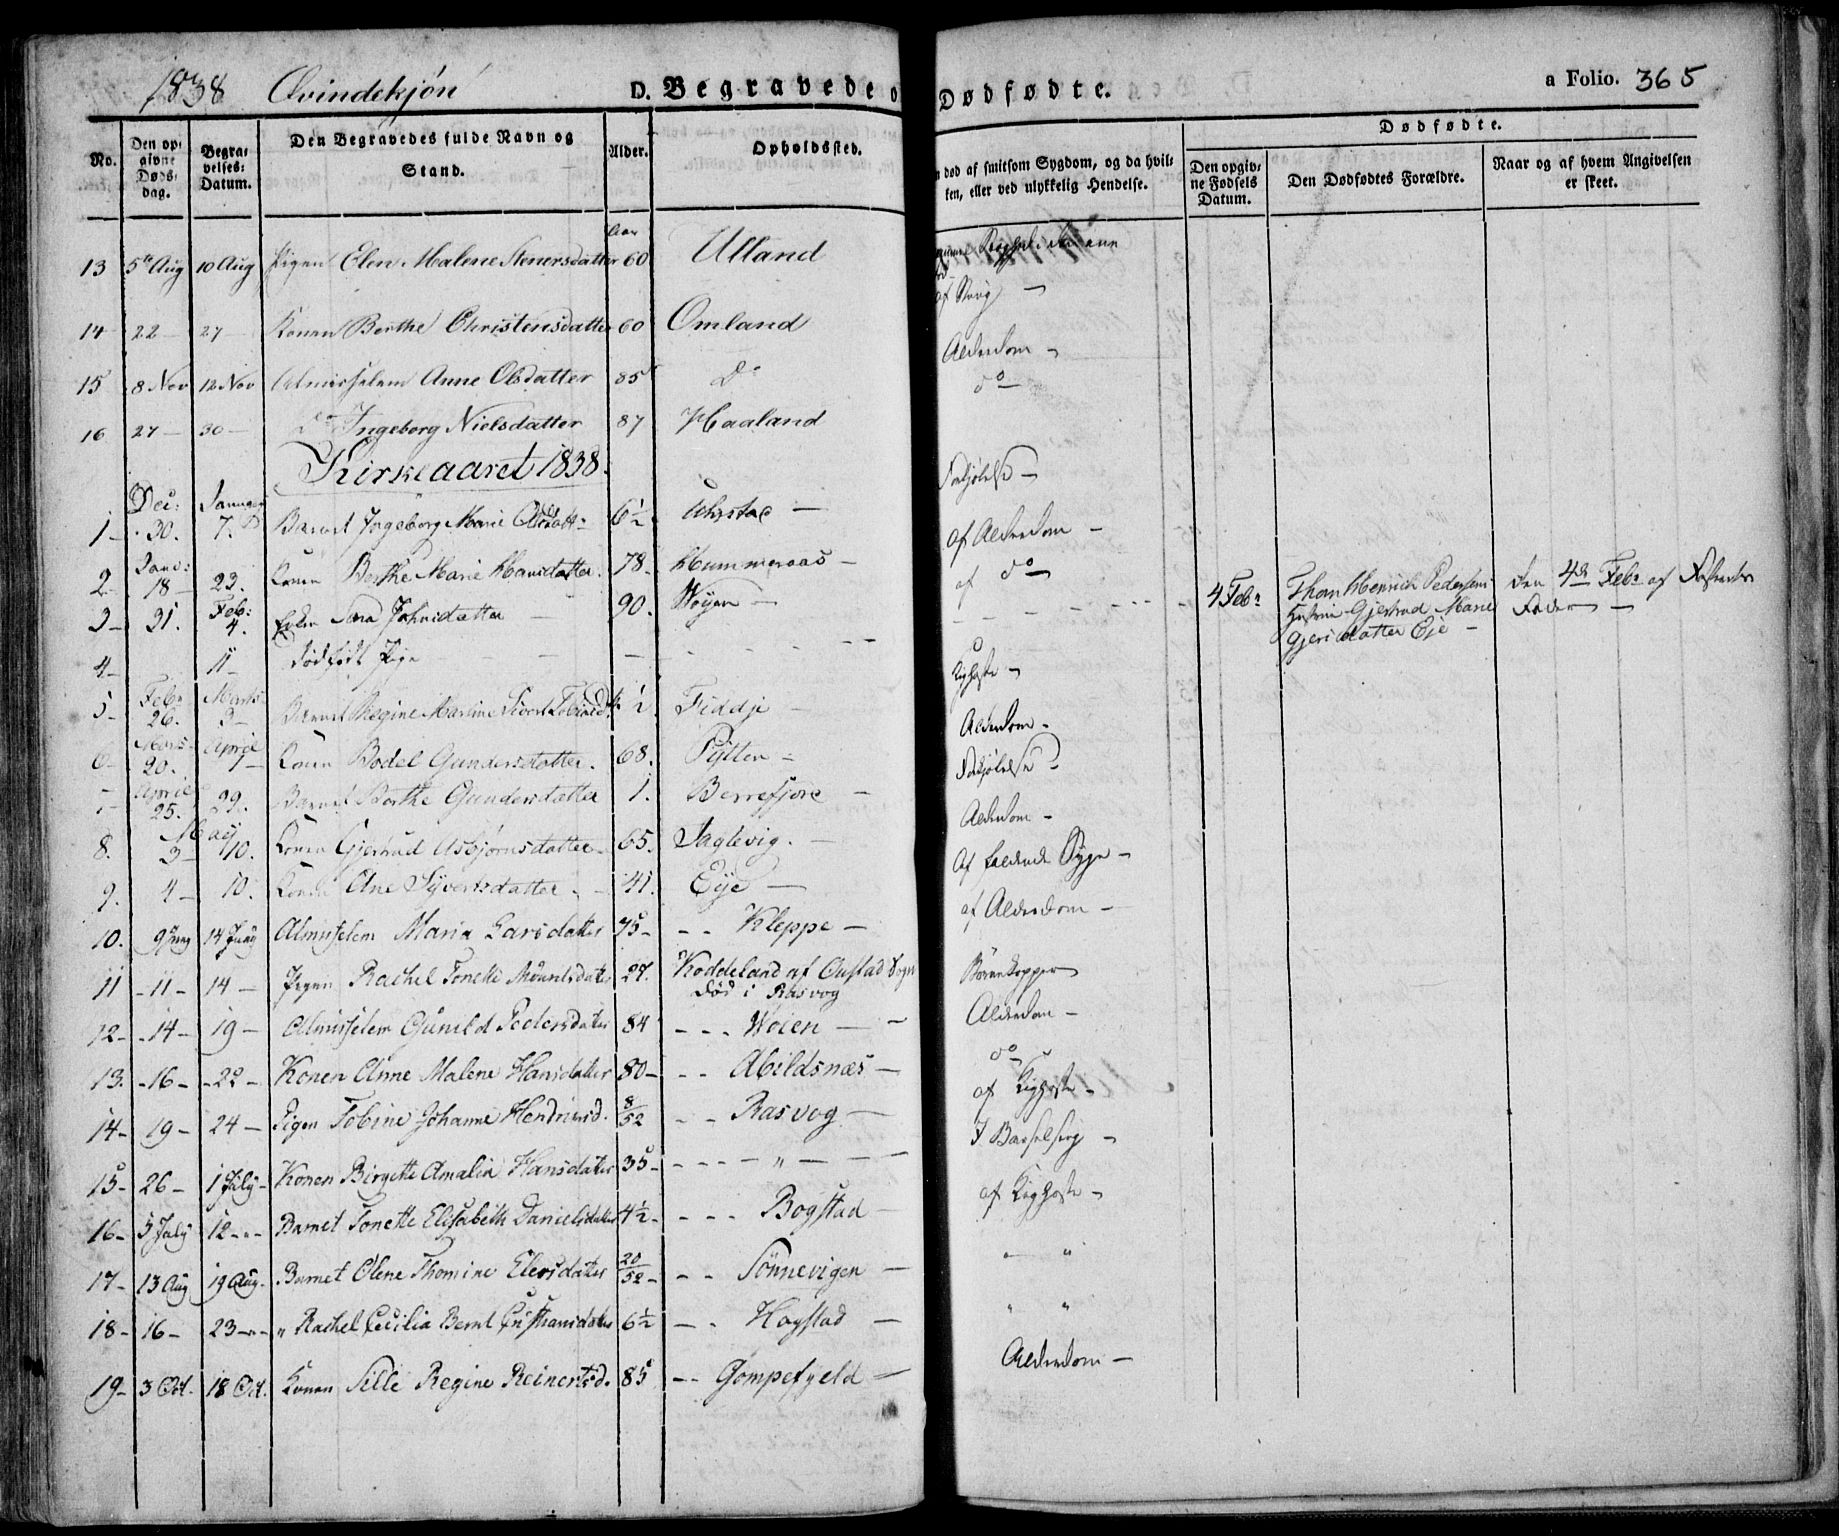 1838 Qvindekjøn D. Begravede o
No. Den opgivne Dødsdag. Begravelses-Datum. Den Begravedes fulde Navn og Stand. Alder. Opholdssted.
Aar
13 5te Aug 10 Aug Pigen Elen Malene Stenersdatter 60 Ulland
14 22 — 27 — Konen Berthe Christensdatter 60 Omland
15 8 Nov 12 Nov Almisselem Anne Olsdatter 85 Do
16 27 — 30 — Do Ingeborg Nielsdatter 87 Haaland
Kirkeaaret 1838.
1 — Dec: 30. Januar 7. Barnet Ingeborg Marie 6½
2 — Janv: 18 — 23. Konen Berthe Marie Hansdatter. 78. Hummeraas —
3 — 31. Feb: 4. Enken Sara Johnsdatter — 90. Woyen —
4 — 11 — Dødfødt Pige — — —
5 — Feb: 26. Marts 3 — Barnet Regine Martine ½ Fiddje —
6 — Mars 20. April 1 — Konen Bodel Gundersdatter. 68. Pytten —
7 — April 25. 29. Barnet Berthe Gundersdatter 1. Berrefjore —
8. May 3 — 10. Konen Gjertrud Asbjørnsdatter 65. Saglevig. —
9. 4 — 10. Konen Ane Syvertsdatter — 41. Eije —
10. 9 Juny 14 Juny Almisselem Maria Larsdatter 75 — - - Kleppe —
11 - 11 - 14 — Pigen Rachel Tonette 27. Koddeland af Oustad Sogn
død i Rasvog
12 - - 14 - 19 - Almisselem Gunild Pedersdatter 84 - - - Woien —
13. - 16 - - 22 - Konen Anne Malene Hansdatter 80 - - - Abildsnæs —
14 - 19 - 24 — Pigen Tobine Johanne 8/52 - - Rasvog —
15 - 26 - 1 July - Konen Birgette Amalia Hansdatter 35 - - - - „ —
16 - 5 July 12 - „ - Barnet Tonette Elisabeth Danielsdatter 4½ - - - - Bogstad —
17 - 13 Aug 19 Aug. - Barnet Olene Thomine Elersdatter 20/52 - - - Sönnevigen —
18 - 16 - 23 - „ - „ Rachel Cecilia Bernt 6½ - - Hagstad —
19 - 3 Oct. 18 Oct. Konen Sille Regine Reinertsd. 85 - - Gompefjeld —
Dødfødte. a Folio. 365
n død af smitsom Sygdom, og da hvilken, eller ved ulykkelig Hendelse.
Dødfødte.
Den opgivne Fødsels Datum. Den Dødfødtes Forældre. Naar og af hvem Angivelsen er skeet.
Alderdom —
do —
Forkjølelse —
af Alderdom —
af do —
4 Feb: Thom Henrich Pedersens den 4de Feb: af
Hustrue Gjertrud Marie Fader —
datter Eje —
Kighoste —
Alderdom —
Forkjølelse —
Alderdom —
Af faldende Syge —
af Alderdom —
Børnekopper
Alderdom —
do
af Kighoste —
I Barselseng —
af Kighoste —
„ „
„ „
Alderdom —